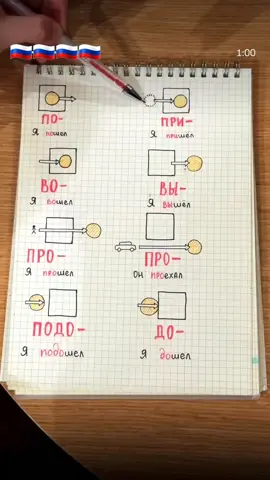 1:00
ПО-
Я пошел
ПРИ-
Я пришел
ВО-
Я вошел
ВЫ-
Я вышел
ПРО-
Я прошел
ПРО-
ОН проехал
ПОДО-
Я подошел
ДО-
Я дошел